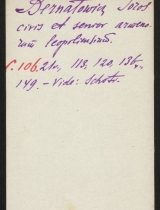 Bernatowicz Soros
civis et senior armeno-
rum leopoliensium.
f. 106. 2b., 118, 120, 136,
149. - Vide: Schotr.